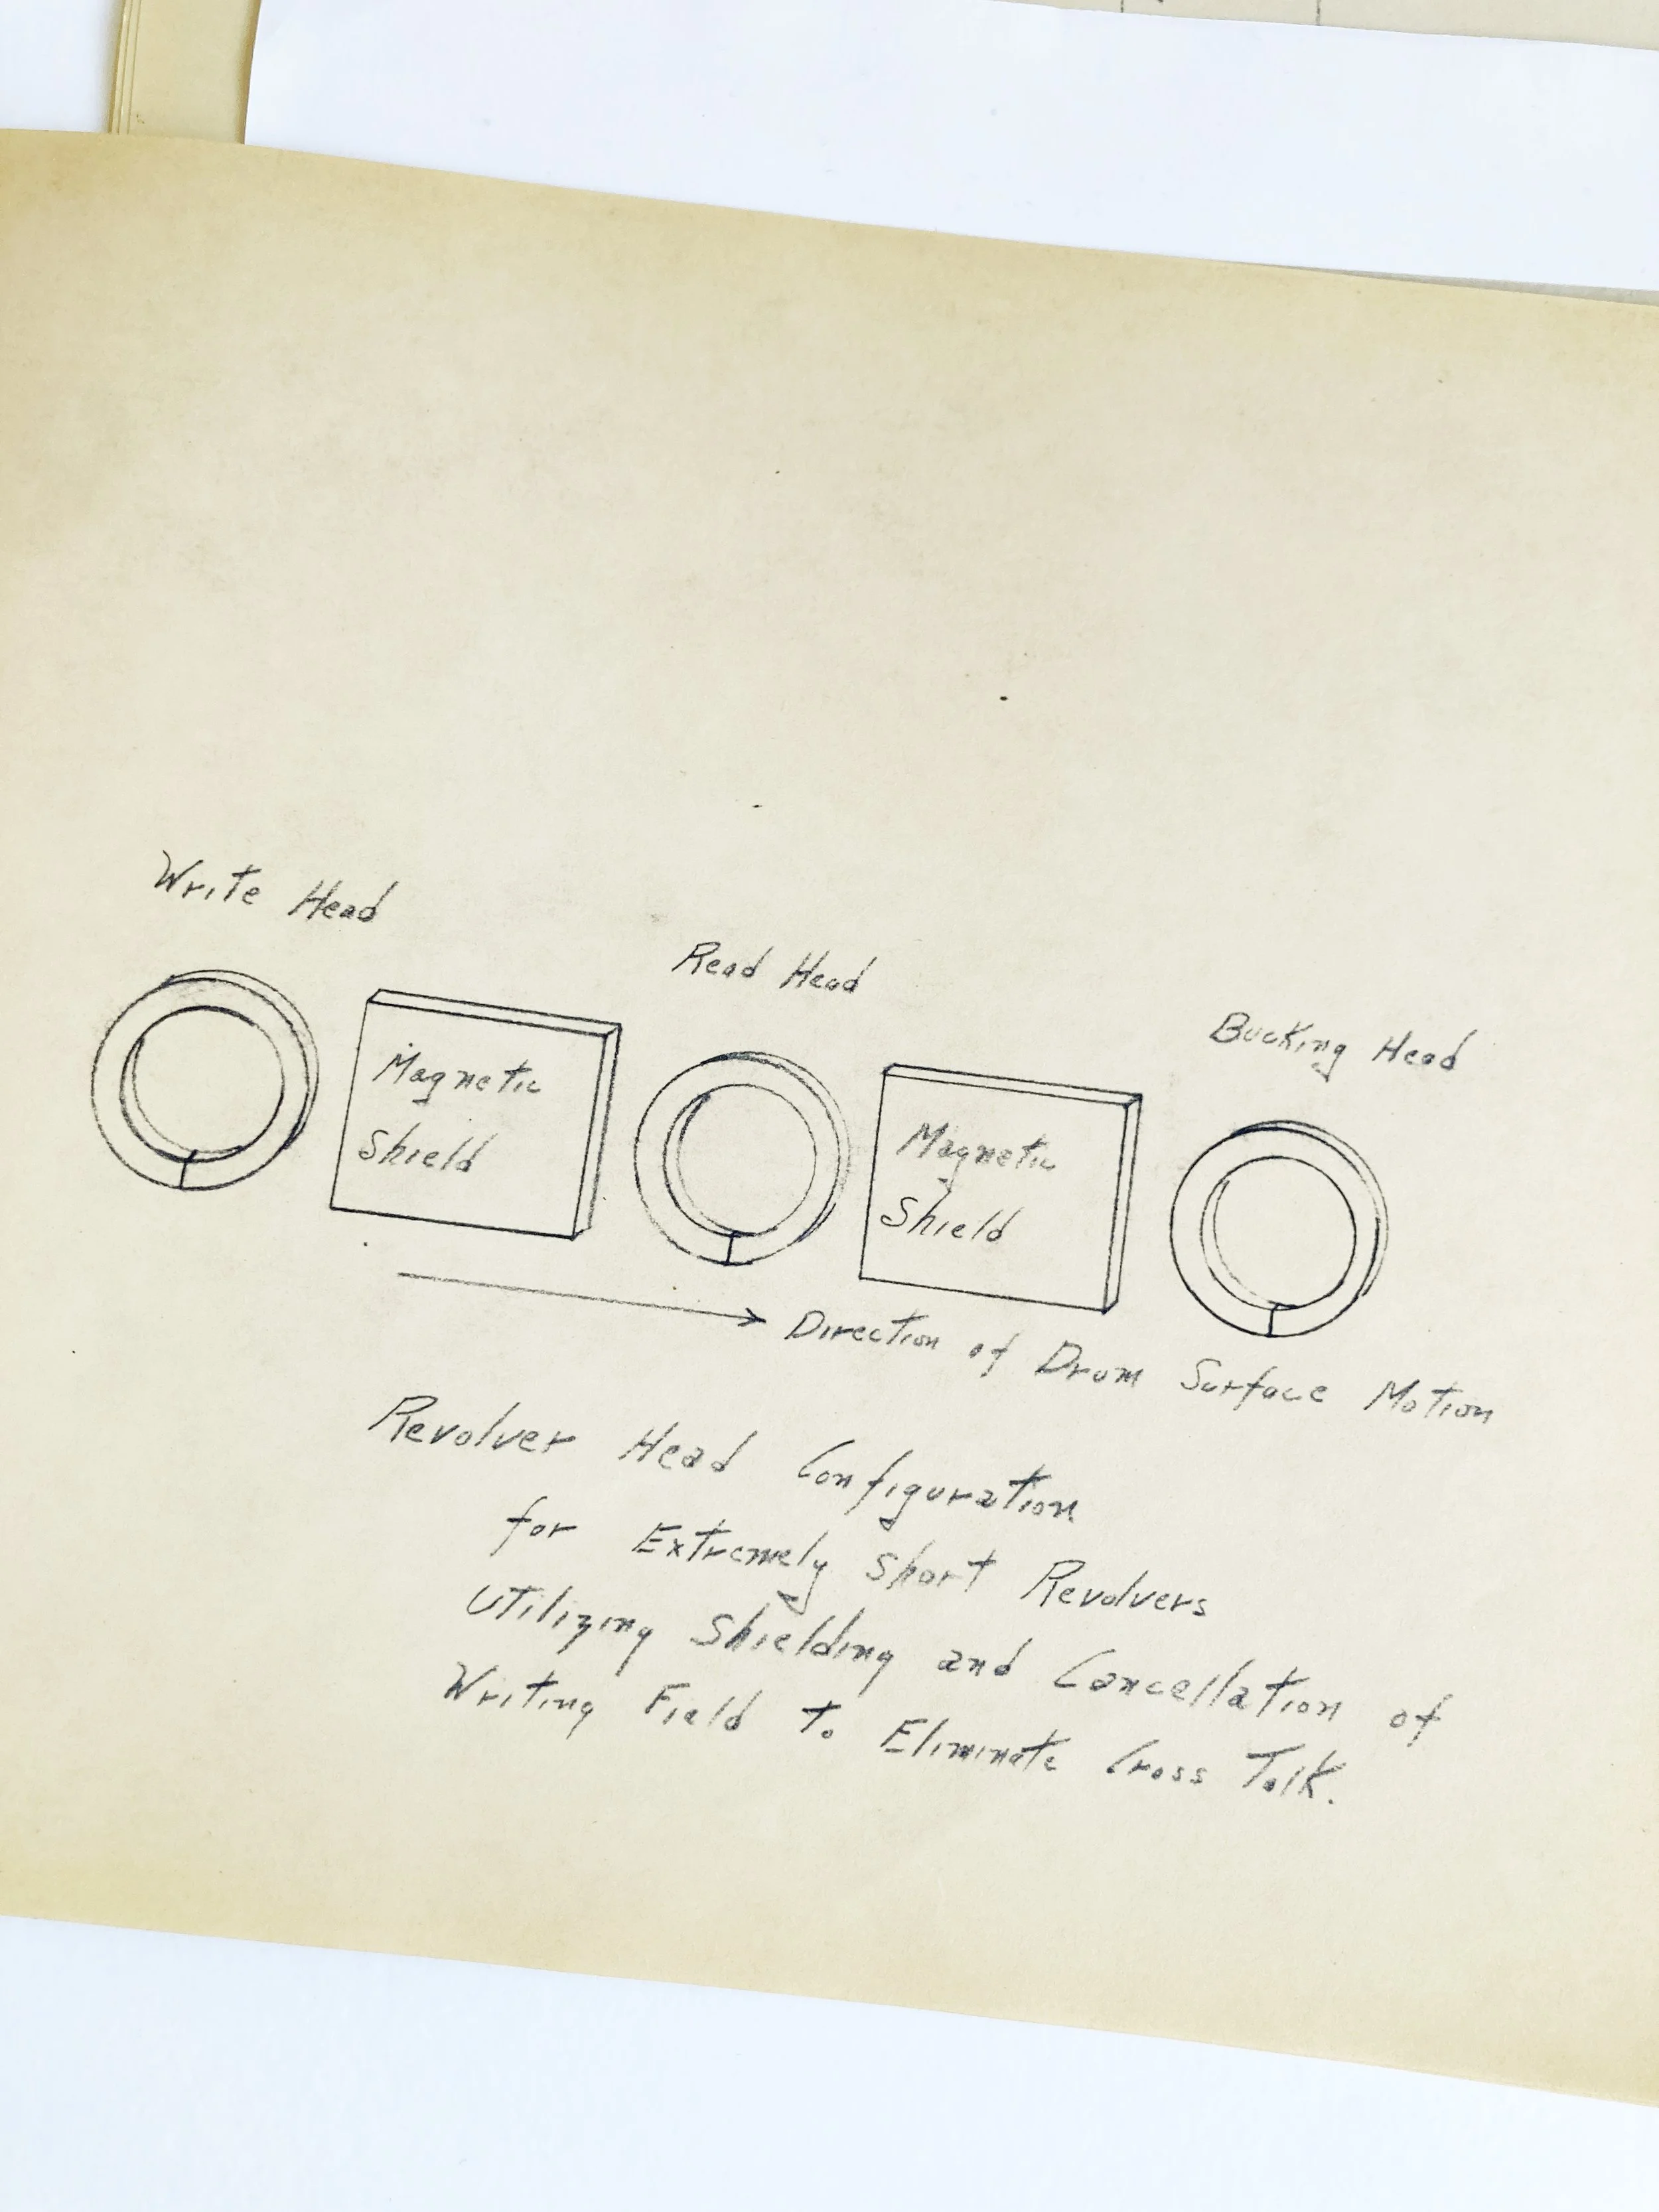 Write Head
Read Head
Bucking Head
Magnetic
Shield
Magnetic
Shield
Direction of Drum Surface Motion
Revolver Head Configuration
for Extremely Short Revolvers
Utilizing Shielding and Cancellation of
Writing Field to Eliminate Cross Talk.